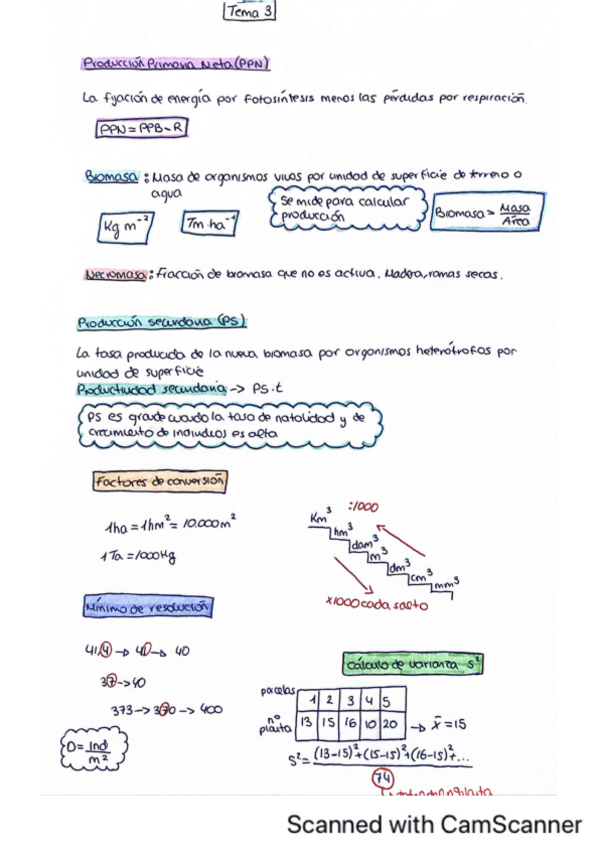 Tema 3
Producción Primaria Neta (PPN)
La fijación de energía por fotosíntesis menos las pérdidas por respiración.
PPN = PPB - R
Biomasa : Masa de organismos vivos por unidad de superficie de terreno o
agua
Se mide para calcular
producción
Biomasa = Masa
Área
Kg m⁻²
Tm·ha⁻¹
Necromasa : Fracción de biomasa que no es activa. Madera, ramas secas.
Producción secundaria (PS)
La tasa producida de la nueva biomasa por organismos heterótrofos por
unidad de superficie
Productividad secundaria -> PS.t
PS es grande cuando la tasa de natalidad y de
crecimiento de individuos es alta
Factores de conversión
1ha = 1hm² = 10.000m²
1 Ta = 1000Kg
:1000
Km³
hm³
dam³
m³
dm³
cm³
mm³
x1000 cada salto
Mínimo de resolución
41,4 -> 41 -> 40
37 -> 40
373 -> 370 -> 400
D = Ind
m²
Cálculo de varianza S²
parcelas 1 2 3 4 5
nº planta 13 15 16 10 20 -> x̄ = 15
S² = (13-15)² + (15-15)² + (16-15)² + ...
74